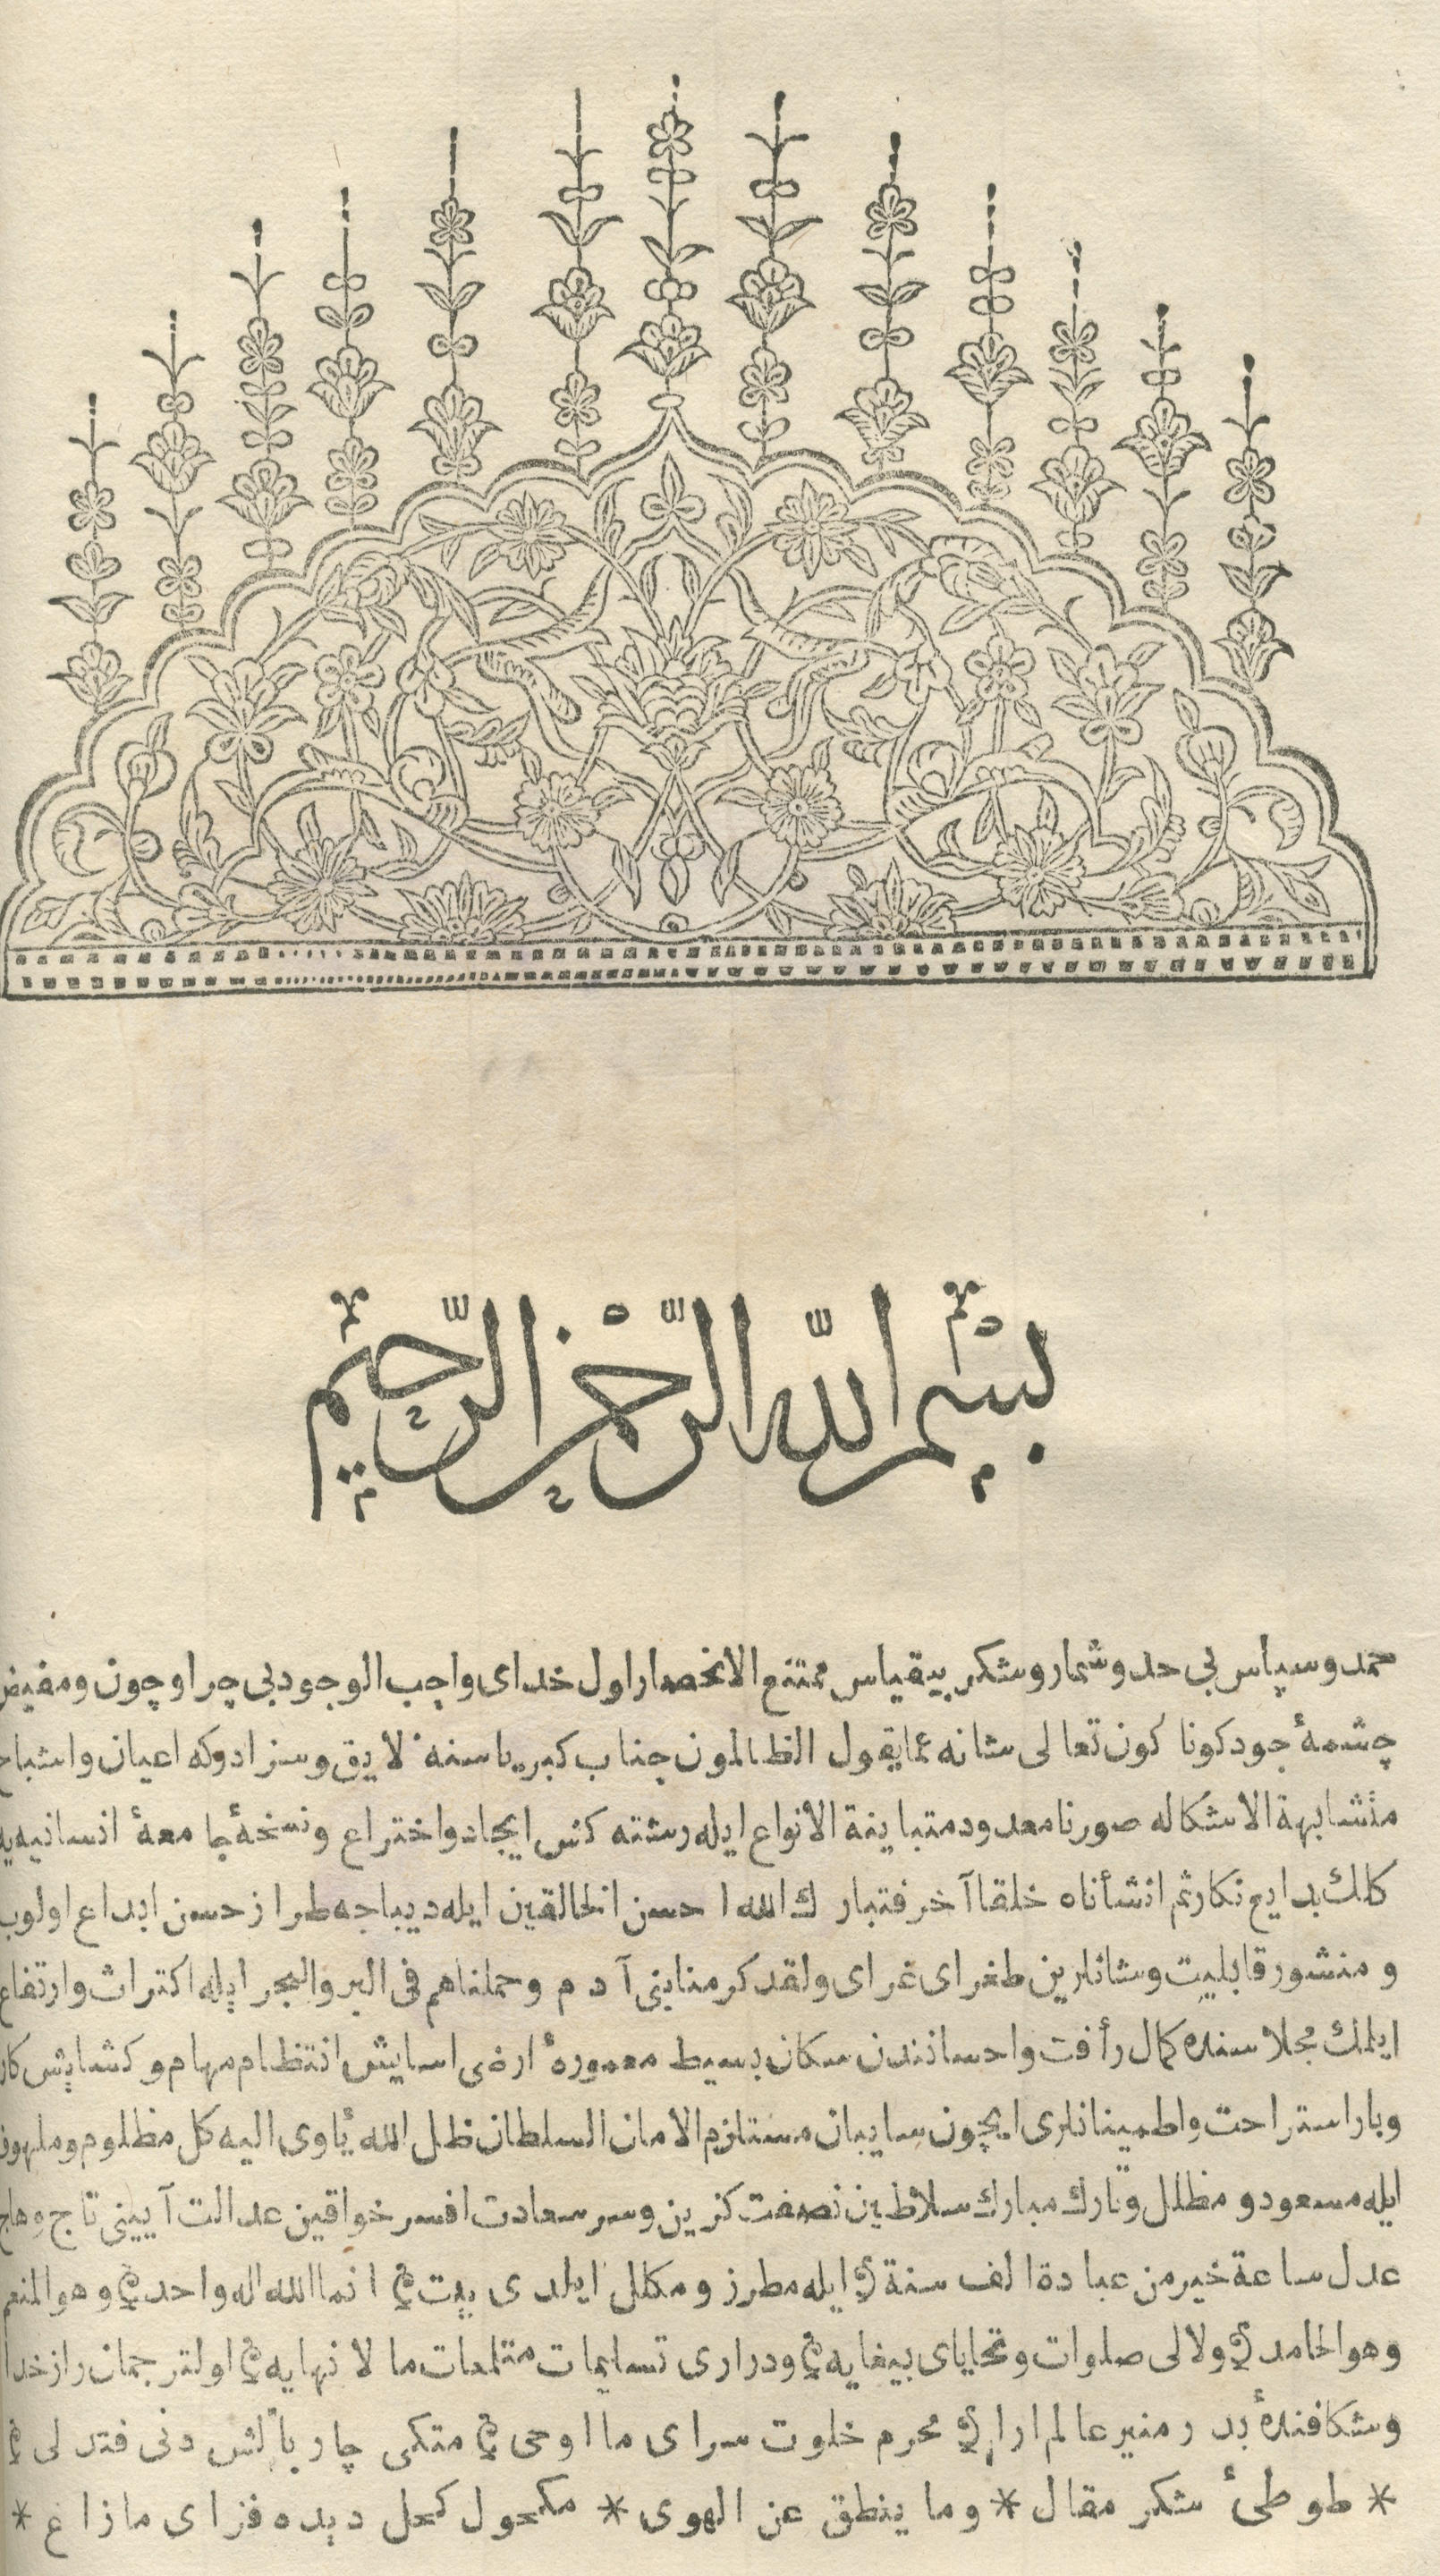 بسم الله الرحمن الرحيم
حمد و سپاس بى حد و شمار و شكر بيقياس ممتنع الانحصار اول خداى واجب الوجود بى چرا و چون و مفيض
چشمهٔ جود كونا كون تعالى شانه عما يقول الظالمون جناب كبرياسنه لايق و سزادر كه اعيان و اشباح
متشابهة الاشكاله صور نامعدود متباينة الانواع ايله رشته كش ايجاد و اختراع و نسخهٔ جامعهٔ انسانيه يه
كلك بدايع نكار ثم انشأناه خلقا آخر فتبارك الله احسن الخالقين ايله ديباجه طراز حسن ابداع اولوب
و منشور قابليت و شانلرين طغراى غراى ولقد كرمنا بنى آدم وحملناهم فى البر والبحر ايله اكتراث و ارتفاع
ايلمك مجلاسنده كمال رأفت و احسانندن سكان بسيط معمورهٔ ارضى اسايش انتظام مهام و كشايش كار
و بار استراحت و اطمينانلرى ايچون سايبان مستلزم الامان السلطان ظل الله يأوى اليه كل مظلوم و ملهوف
ايله مسعود و مظلل و تارك مبارك سلاطين نصفت كزين و سر سعادت افسر خواقين عدالت آيينى تاج وهاج
عدل ساعة خير من عبادة الف سنة ايله مطرز و مكلل ايلدى بيت انما الله اله واحد وهو المنعم
وهو الحامد ولالى صلوات و تحاياى بيغايه و درارى تسليمات متلمعات ما لا نهايه اول ترجمان راز خدا
و شكافندهٔ بدر منير عالم ارا محرم خلوت سراى ما اوحى متكى چار بالش دنى فتدلى
* طوطئ شكر مقال * وما ينطق عن الهوى * مكحول كحل ديده فزاى مازاغ *